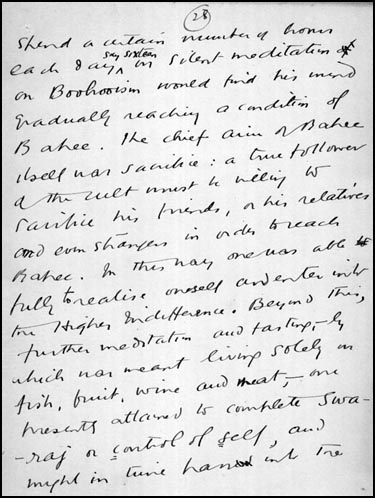 28
spend a certain number of hours
each day, say sixteen in silent meditation
on Boohooism would find his mind
gradually reaching a condition of
Bahee. The chief aim of Bahee
itself was sacrifice: a true follower
of the cult must be willing to
sacrifice his friends, or his relatives
and even strangers in order to reach
Bahee. In this way one was able
fully to realise oneself and enter into
the Higher Indifference. Beyond this,
further meditation and fasting,- by
which was meant living solely on
fish, fruit, wine and meat,- one
presently attained to complete Swa-
-raj or control of self, and
might in time pass into the